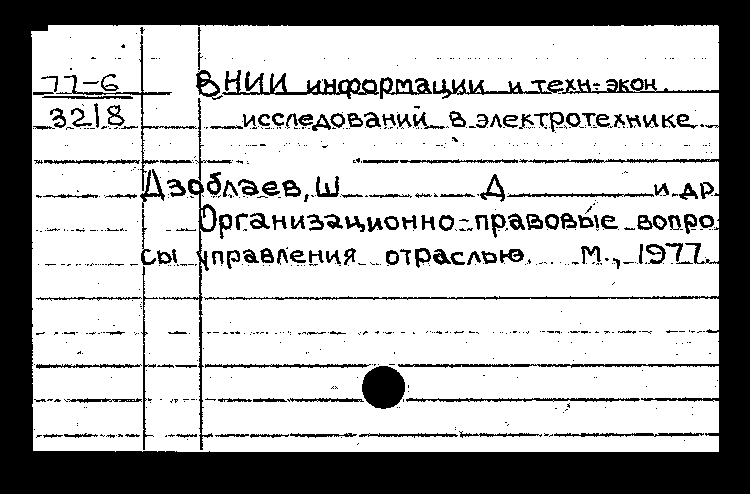 77-6 ВНИИ информации и техн-экон.
3218 исследований в электротехнике
Дзоблаев, Ш Д и др
Организационно-правовые вопро
сы управления отраслью. М., 1977.